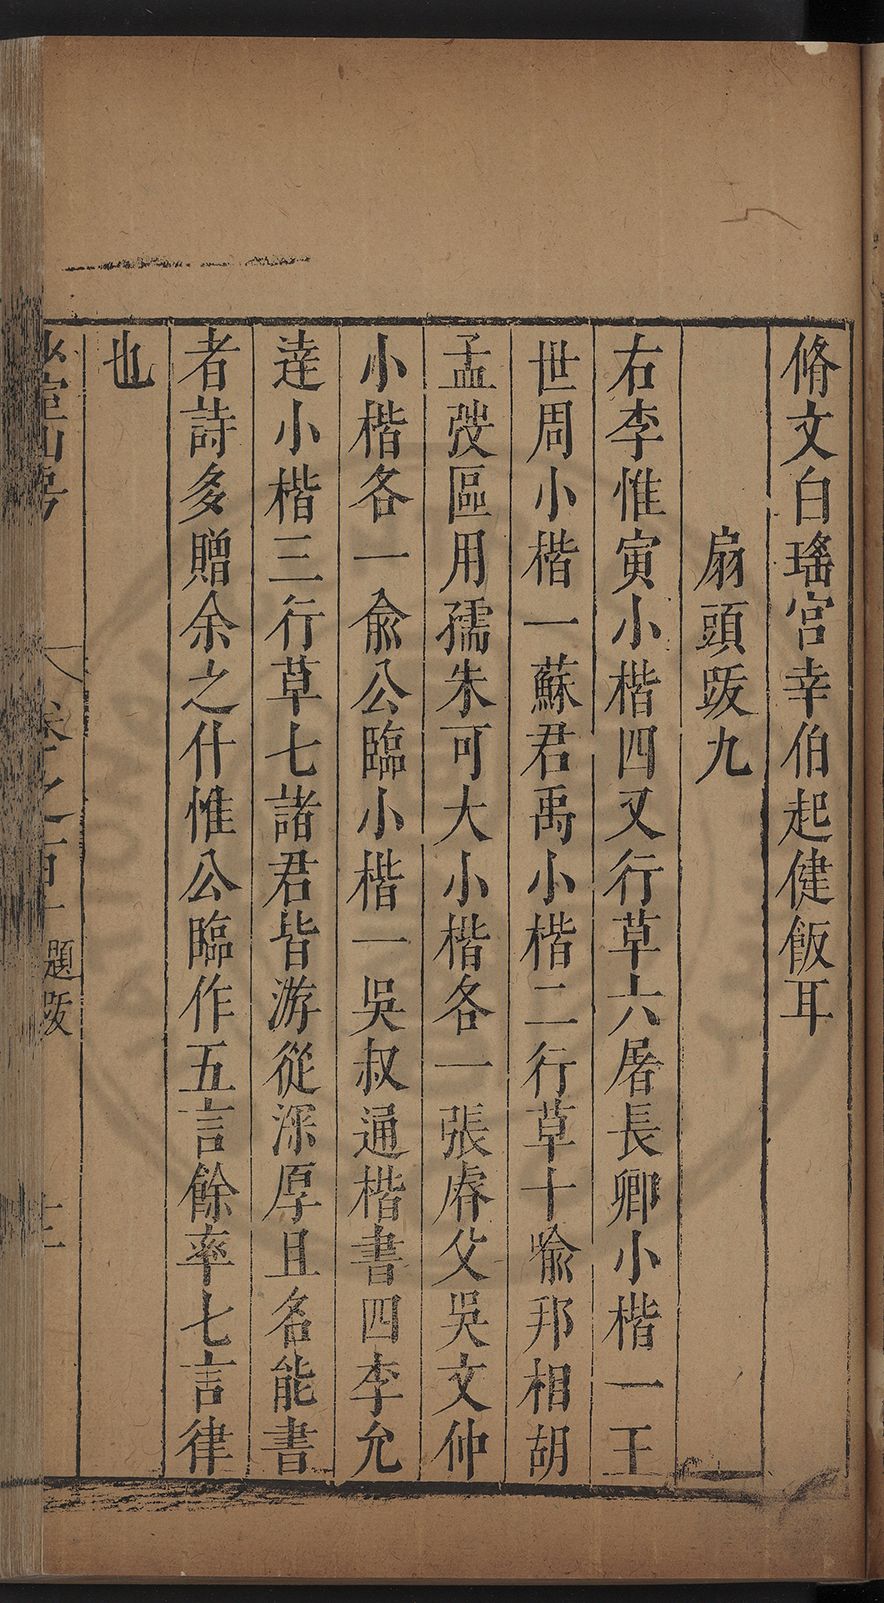 脩文白瑤宮幸伯起健飯耳
扇頭跋九
右李惟寅小楷四又行草六屠長卿小楷一王
世周小楷一蘇君禹小楷二行草十喻邦相胡
孟弢區用孺朱可大小楷各一張睿父吳文仲
小楷各一兪公臨小楷一吳叔通楷書四李允
達小楷三行草七諸君皆游從深厚且名能書
者詩多贈余之什惟公臨作五言餘率七言律
也
室山房
卷之百十 題跋